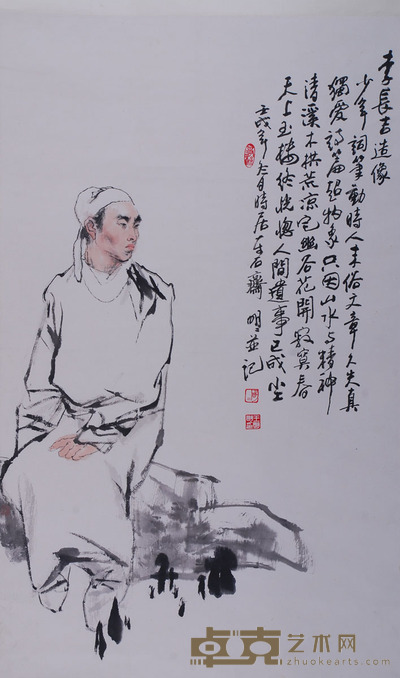 李長吉造像
少年詞筆動時人末俗文章久失真
獨愛詩篇超物象只因山水与精神
清溪木拱荒凉宅幽谷花開寂寞春
天上玉楼終恍惚人間遺事已成尘
壬戌年冬月時居石齋 明並記
卓克艺术网
zhuokearts.com